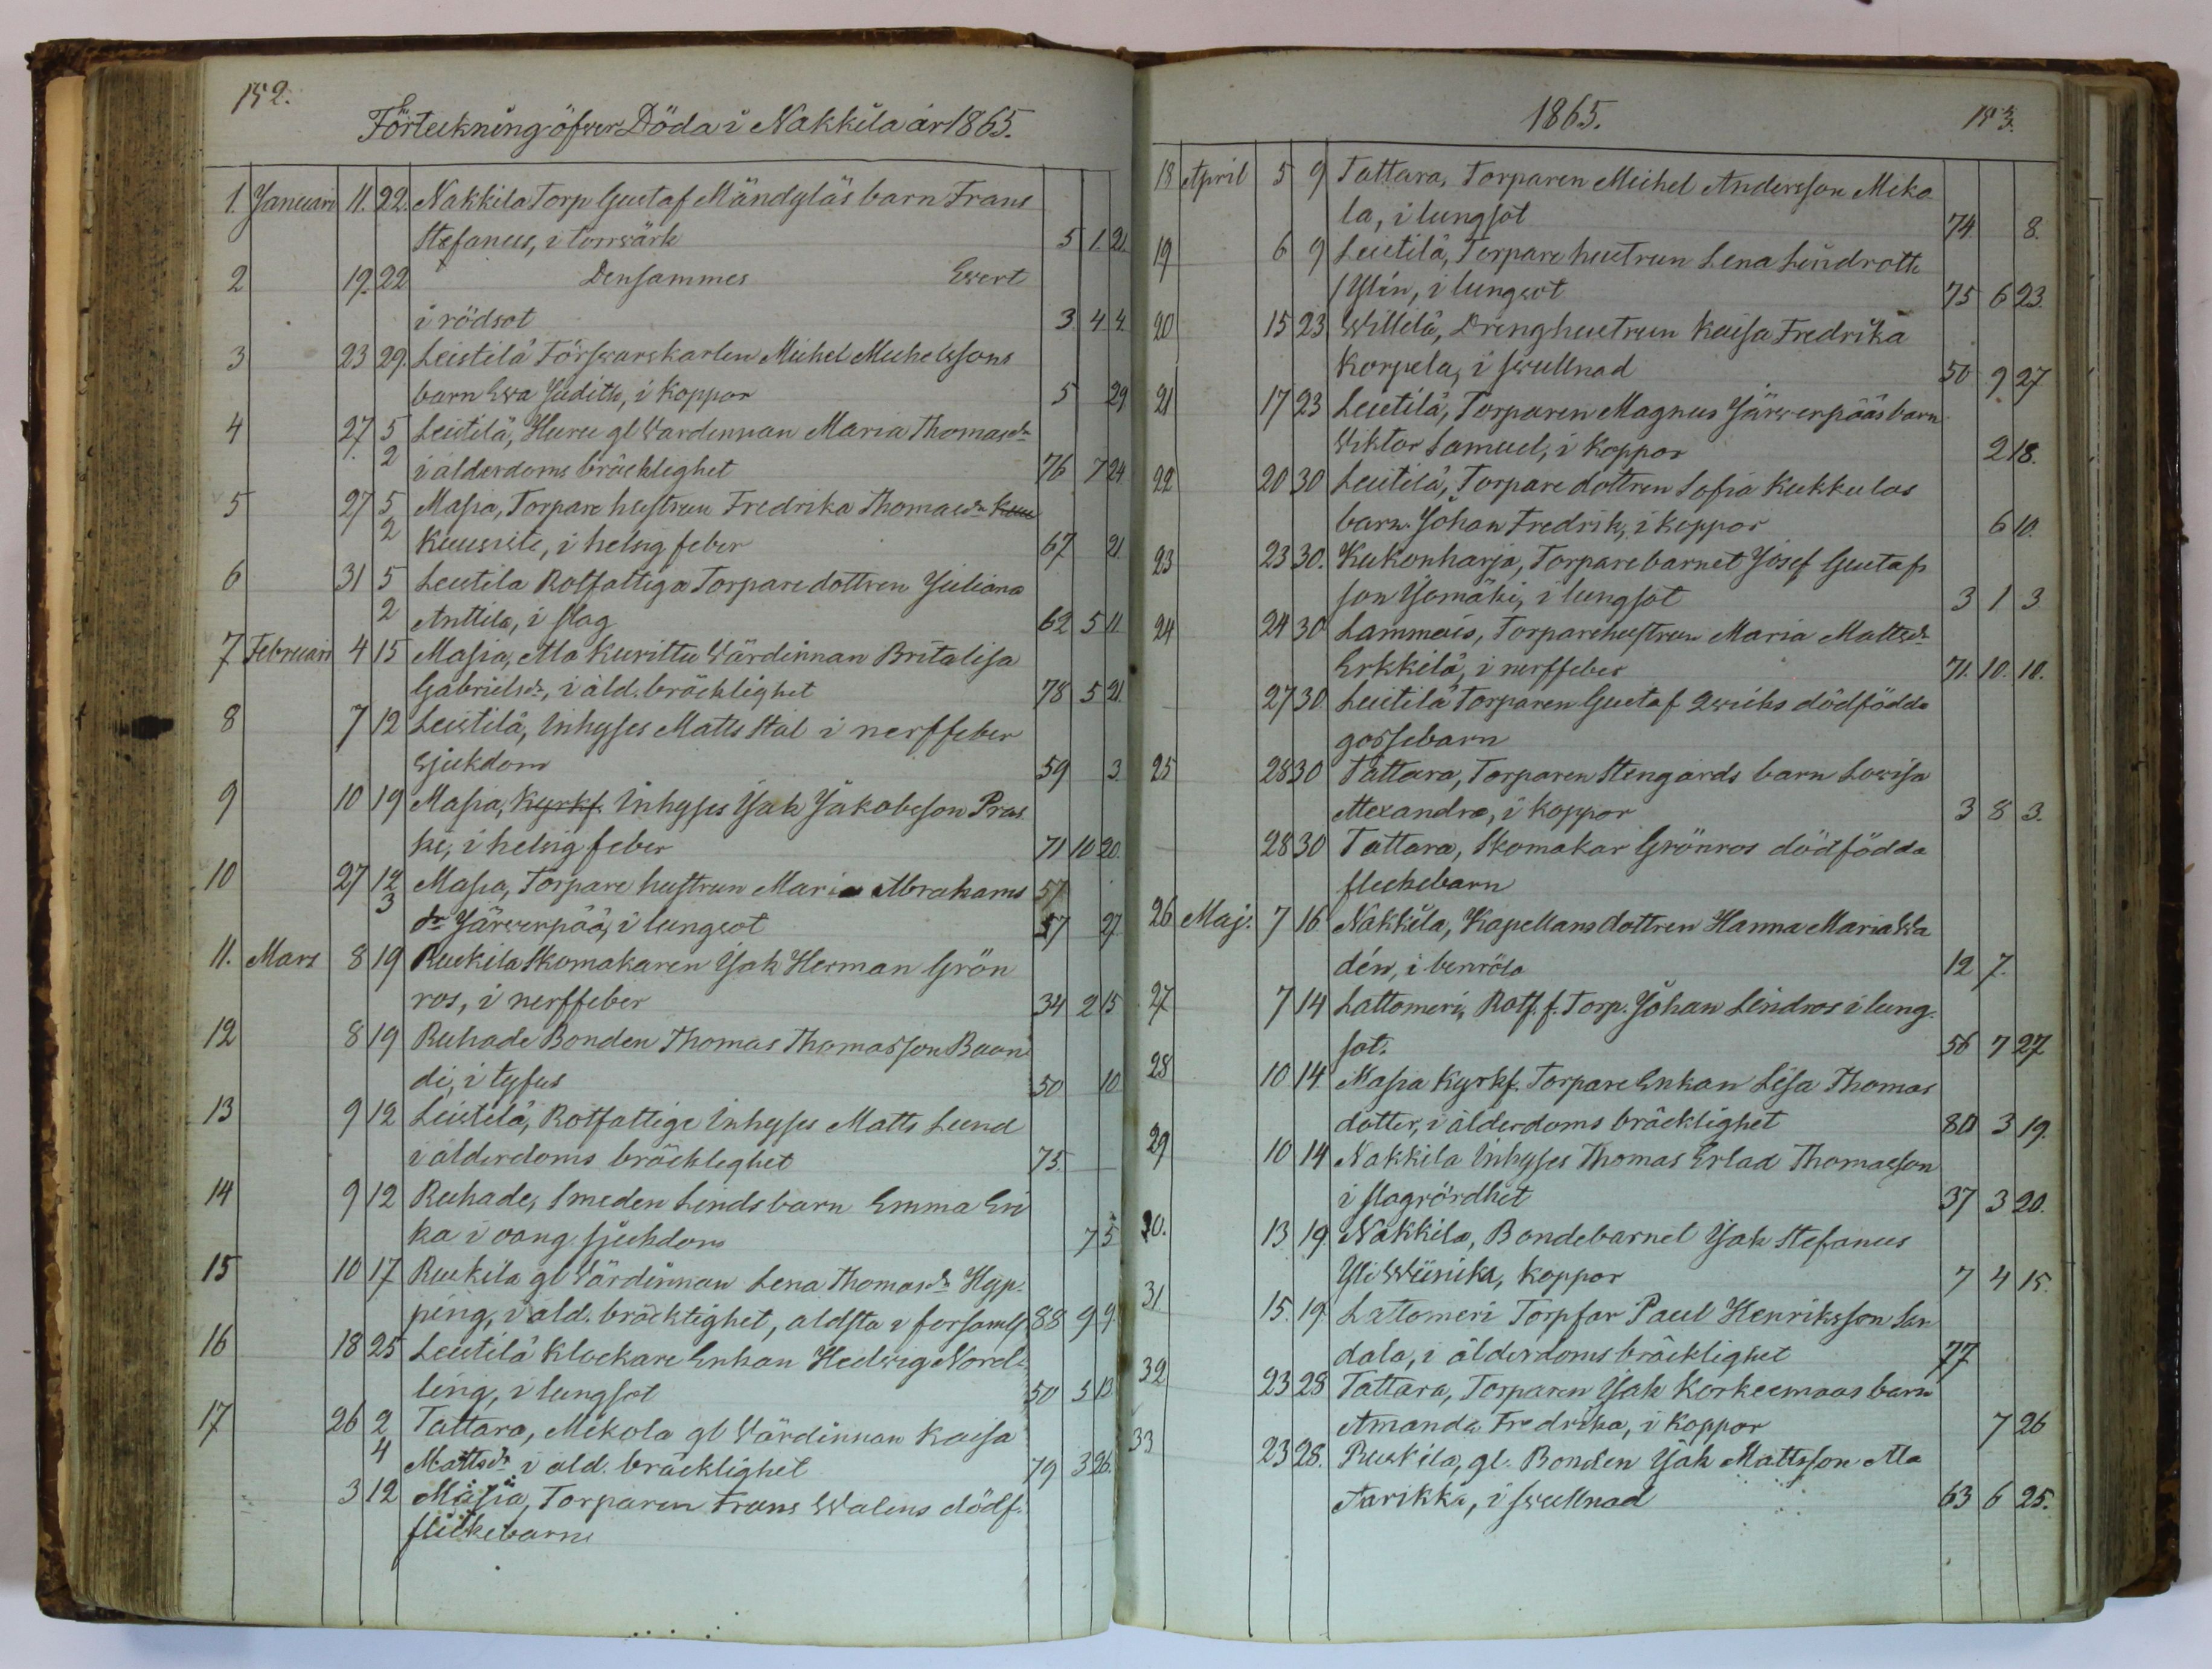 152.
Förteckning öfver Döda i Nakkila år 1865.
1. Januari 11. 22. Nakkila Torp Gustaf Mändyläs barn Frans
Stefanus, i torrvärk 5 1 21.
2 19. 22 Densammes Evert
i rödsot 3 4 4.
3 23 29. Leistilä Försvarskarlen Michel Michelssons
barn Ewa Judith, i koppor 5 29
4 27. 5 Leistilä, Huru gl Wardinnan Maria Thomasdr
2 i ålderdoms bräcklighet 76 7 24
5 27 5 Masia, Torpare hustrun Fredrika Thomasdr Kuu
2 Kuusisto, i hetsig feber 67 21
6 31 5 Leistila Rotfattiga Torparedottren Juliana
2 Anttila, i slag 62 5 11
7 Februari 4 15 Masia, Ala Kurittu Värdinnan Britalisa
Gabrielsdr, i åld. bräcklighet 78 5 21.
8 7 12 Leistilä, Inhyses Matts Stål i nerffeber
Sjukdom 59 3
9 10 19 Masia, Kyrkf. Inhyses Isak Jakobsson Pras
ki, i hetsig feber 71 10 20.
10 27 12 Masia, Torpare hustrun Maria Abrahams 57
3 dr Järvenpää, i lungsot 57 27
11. Mars 8 19 Ruskila Skomakaren Isak Herman Grön
ros, i nerffeber 34 2 15
12 8 19 Ruhade Bonden Thomas Thomasson Baan
di, i tyfus 50 10
13 9 12 Leistilä, Rotfattige Inhyses Matts Lund
i ålderdoms bräcklighet 75.
14 9 12 Ruhade, Smeden Linds barn Emma Eri
ka i oang. sjukdom 7 5
15 10 17 Ruskila gl Värdinnan Lena Thomasdr Hyp-
ping, i åld. bräcklighet, aldsta i forsaml 88 9 9.
16 18 25 Leistilä Klockare Enkan Hedvig Nord-
ling, i lungsot 50 3 13
17 26 2 Tattara, Mikola gl Värdinnan Kaisa
4 Mattsdr i åld. bräcklighet 79 3 26.
3 12 Masia, Torparen Frans Walins dödf.
flickebarn
1865. 153.
18 April 5 9 Tattara, Torparen Michel Andersson Miko
la, i lungsot 74. 8.
19 6 9 Leistilä, Torpare hustrun Lena Lindroth
/ Ylin, i lungsot 75 6 23.
20 15 23 Willilä, Dränghustrun Kaisa Fredrika
Korpela, i svullnad 50 9 27
21 17 23 Leistilä, Torparen Magnus Järvenpääs barn
Wiktor Samuel, i koppor 2 18.
22 20 30 Leistilä, Torpare dottren Sofia Kukkulas
barn Johan Fredrik, i koppor 6 10.
23 23 30. Kukonharja, Torparebarnet Josef Gustafs
son Isomäki, i lungsot 3 1 3
24 24 30 Lammais, Torparehustrun Maria Mattsdr
Erkkilä, i nerffeber 71. 10. 10.
27 30. Leistilä Torparen Gustaf Qwicks dödfödda
gossebarn
25 28 30 Tattara, Torparen Stengårds barn Lovisa
Alexandra, i koppor 3 8 3.
28 30 Tattara, Skomakar Grönros dödfödda
flickebarn
26 Maj. 7 16 Nakkila, Kapellans dottren Hanna Maria Wa
dén, i benröta 12 7.
27 7 14 Lattomeri, Rotf. f. Torp. Johan Lindros i lung-
sot. 56 7 27
28 10 14. Masia Kyrkf. Torpare Enkan Lisa Thomas
dotter, i ålderdoms bräcklighet 80 3 19.
29 10 14 Nakkila Inhyses Thomas Erlad Thomasson
i slagrördhet 37 3 20.
30. 13 19. Nakkila, Bondebarnet Isak Stefanus
Yli Wiinika, koppor 7 4 15.
31 15. 19. Lattomeri Torpfar Paul Henriksson San
dala, i ålderdoms bräcklighet 77
32 23 28 Tattara, Torparen Isak Korkeemaas barn
Amanda Fredrika, i koppor 7 26
33 23 28. Ruskila, gl. Bonden Isak Mattsson Ala
Aarikka, i svullnad 63 6 25.